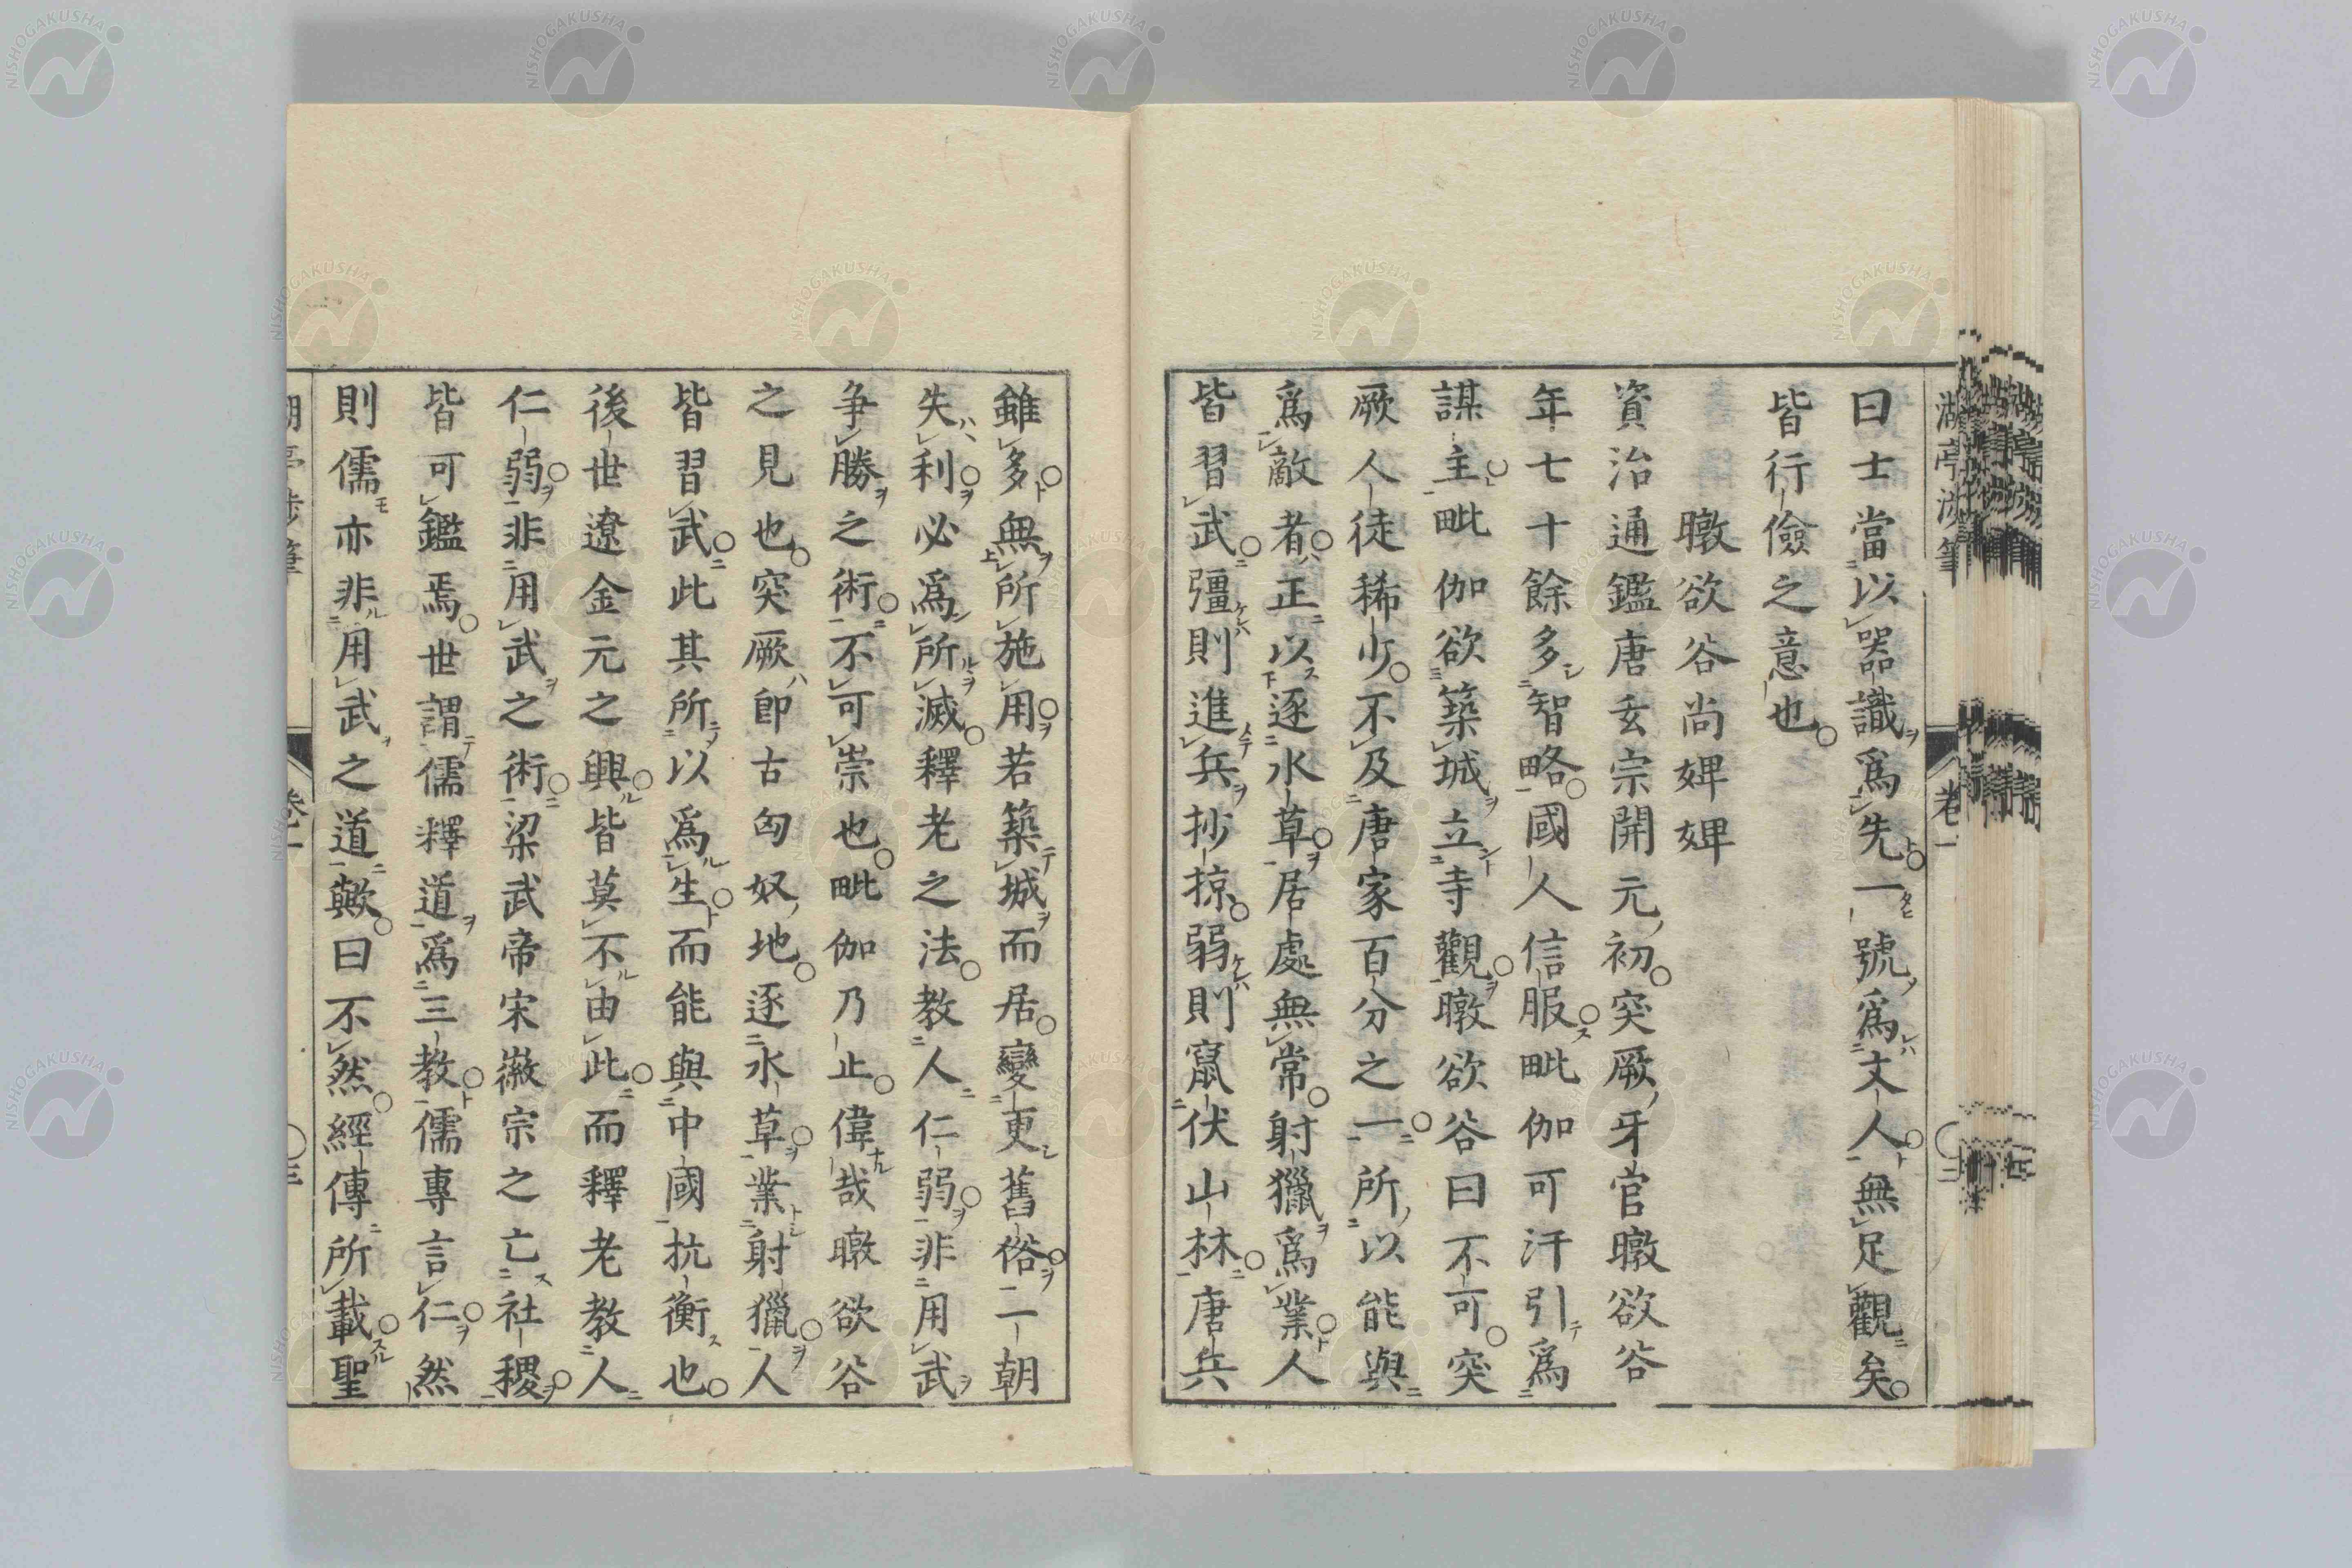 曰士當以器識爲先一號爲文人無足觀矣
皆行儉之意也
暾欲谷尚婢婢
資治通鑑唐玄宗開元初突厥牙官暾欲谷
年七十餘多智略國人信服毗伽可汗引爲
謀主毗伽欲築城立寺觀暾欲谷曰不可突
厥人徒稀少不及唐家百分之一所以能與
爲敵者正以逐水草居處無常射獵爲業人
皆習武彊則進兵抄掠弱則竄伏山林唐兵
雖多無所施用若築城而居變更舊俗一朝
失利必爲所滅釋老之法教人仁弱非用武
争勝之術不可崇也毗伽乃止偉哉暾欲谷
之見也突厥即古匈奴地逐水草業射獵人
皆習武此其所以爲生而能與中國抗衡也
後世遼金元之興皆莫不由此而釋老教人
仁弱非用武之術梁武帝宋徽宗之亡社稷
皆可鑑焉世謂儒釋道爲三教儒專言仁然
則儒亦非用武之道歟曰不然經傳所載聖
湖亭涉筆
卷一
NISHOGAKUSHA